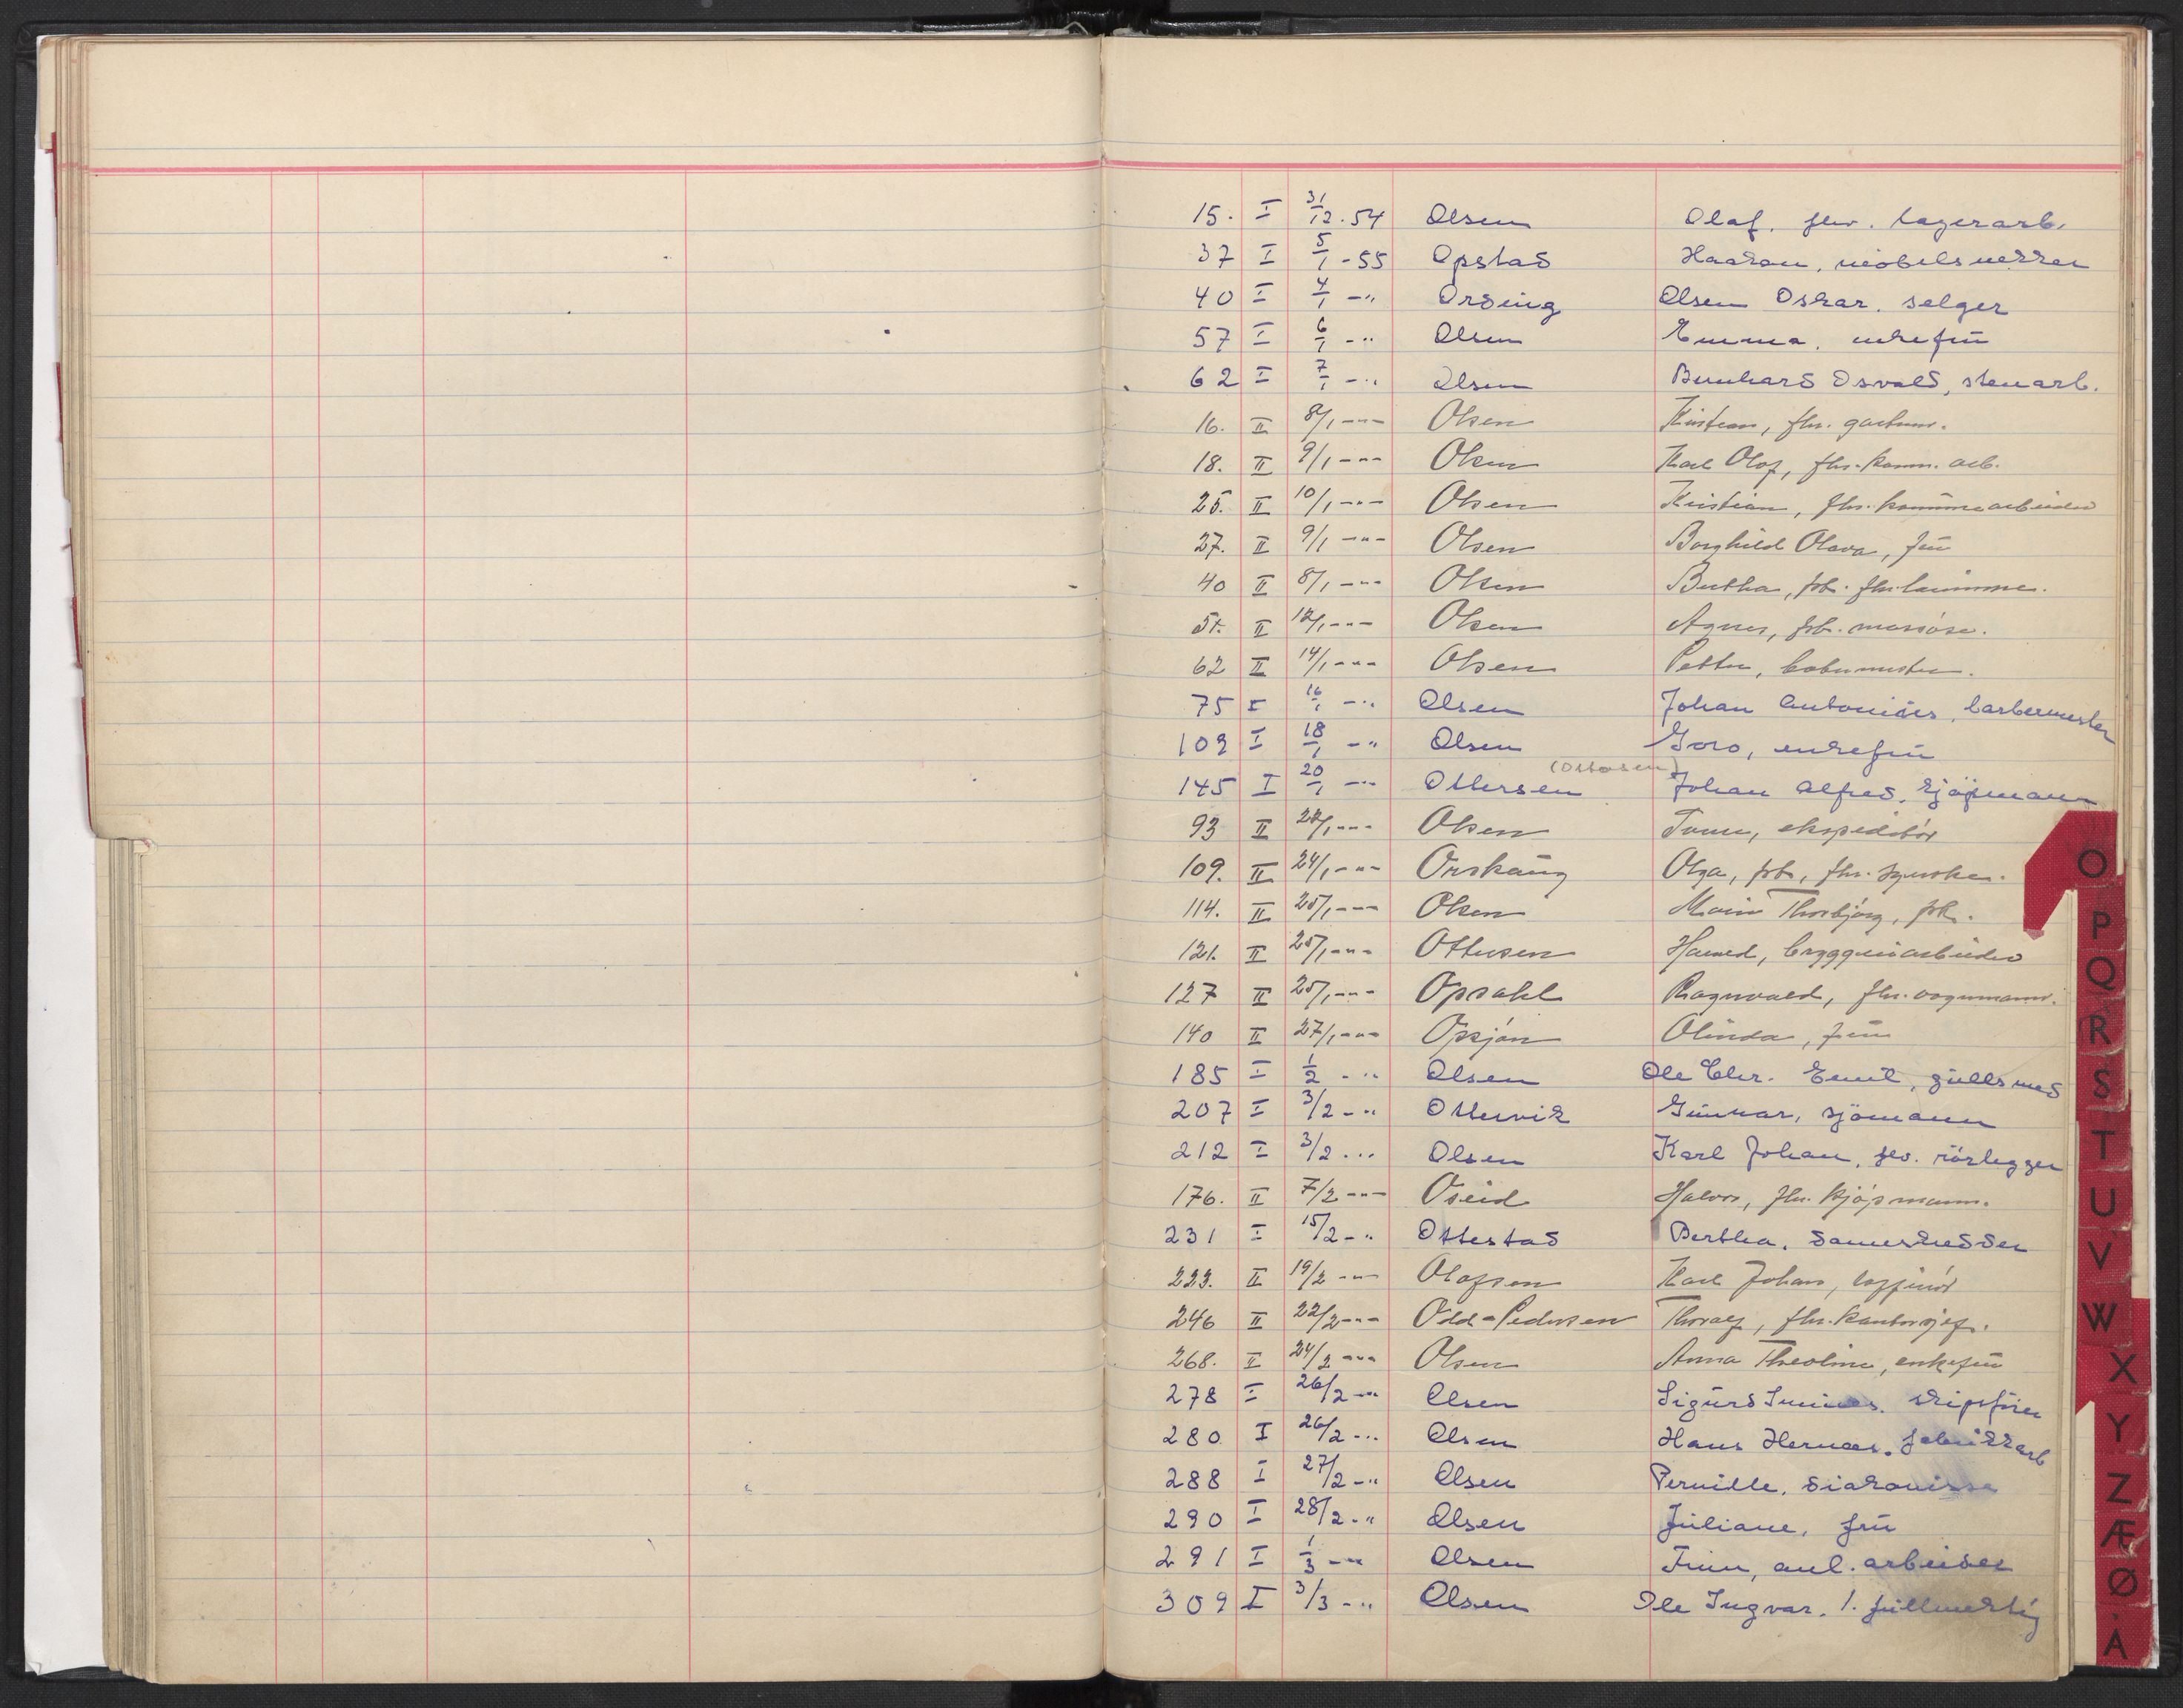 15. I 31/12.54 Olsen Olaf, fhv. lagerarb.
37 I 5/1 -55 Opstad Haakon, møbelsnekker
40 I 4/1 -" Ording Olsen Oskar. selger
57 I 6/1 -" Olsen Emma, enkefrü
62 I 7/1 -" Olsen Bernhard Osvald, stenarb.
16. II 8/1 -"- Olsen Kristian, fhv. gartner.
18. II 9/1 -"- Olsen Karl Olaf, fhv. komm. arb.
25. II 10/1 -"- Olsen Kristian, fhv. kommünearbeider
27. II 9/1 -"- Olsen Borghild Olava, frü
40 II 8/1 -"- Olsen Bertha, frk. fhv. lærerinne.
51. II 12/1 -"- Olsen Agnes, frk. massøse.
62 II 14/1 -"- Olsen Petter,
75 I 16/1 -" Olsen Johan Antonius, barbermester
109 I 18/1 -" Olsen Goro, enkefrü
(Ottosen)
145 I 20/1 -" Ottersen Johan Alfred, kjøpmann
93 II 22/1 -"- Olsen ekspeditør
109. II 24/1 -"- Orskaüg Olga, frk, fhv. syerske.
114. II 25/1 -"- Olsen Thorbjørg, frk.
121. II 25/1 -"- Ottersen Harald, bryggeriarbeider
127 II 25/1 -"- Opsahl Ragnvald, fhv. vognmann.
140 II 27/1 -"- Opsjøn Olinda, frü
185 I 1/2 -" Olsen Ole Chr. Emil, güllsmed
207 I 3/2 -" Ottervik Günnar, sjømann
212 I 3/2 -" Olsen Karl Johan, fhv. rørlegger
176. II 7/2 -"- Oseid Halvor, fhv. kjøpmann.
231 I 15/2 -" Ottestad Bertha, dameskredder
223. II 19/2 -"- Olafsen Karl Johan,
246 II 22/2 -"- Odd-Pedersen Thoralf, fhv. kontorsjef.
268. II 24/2 -"- Olsen Anna Theoline, enkefrü
278 I 26/2 -" Olsen Sigürd skipsfører
280 I 26/2 -" Olsen Hans Herman, fabrikkarb
288 I 27/2 -" Olsen Pernille, diakonisse
290 I 28/2 -" Olsen Jüliane, frü
291 I 1/3 -" Olsen Finn, anl. arbeider
309 I 3/3 -" Olsen Ole Ingvar, 1. füllmektig
O
P
Q
R
S
T
U
V
W
X
Y
Z
Æ
Ø
Å